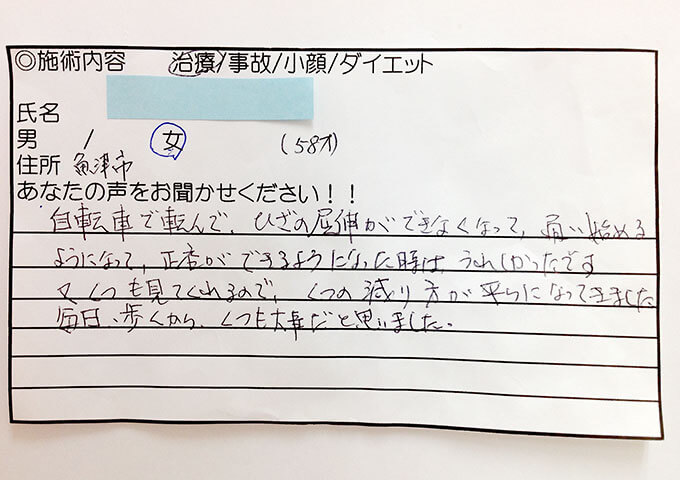 ◎施術内容 治療/事故/小顔/ダイエット
氏名
男 / 女 (58才)
住所 魚津市
あなたの声をお聞かせください！！
自転車で転んで、ひざの屈伸ができなくなって、通い始める
ようになって、正座ができるようになった時は、うれしかったです
又くつも見てくれるので、くつの減り方が平らになってきました
毎日、歩くから、くつも大事だと思いました。